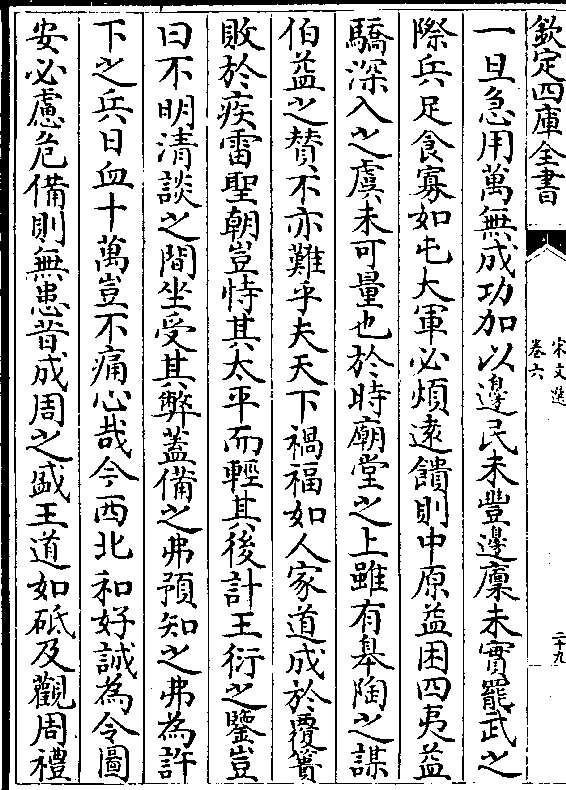 欽定四庫全書
宋文選
卷六
二十九
一旦急用萬無成功加以邊民未豐邊廪未實罷武之
際兵足食寡如屯大軍必煩逺饋則中原益困四夷益
驕深入之虞未可量也於時廟堂之上雖有皋陶之謀
伯益之賛不亦難乎夫天下禍福如人家道成於覆簣
敗於疾雷聖朝豈恃其太平而輕其後計王衍之鑒豈
曰不明清談之間坐受其弊蓋備之弗預知之弗為許
下之兵日血十萬豈不痛心哉今西北和好誠為令圖
安必慮危備則無患昔成周之盛王道如砥及觀周禮